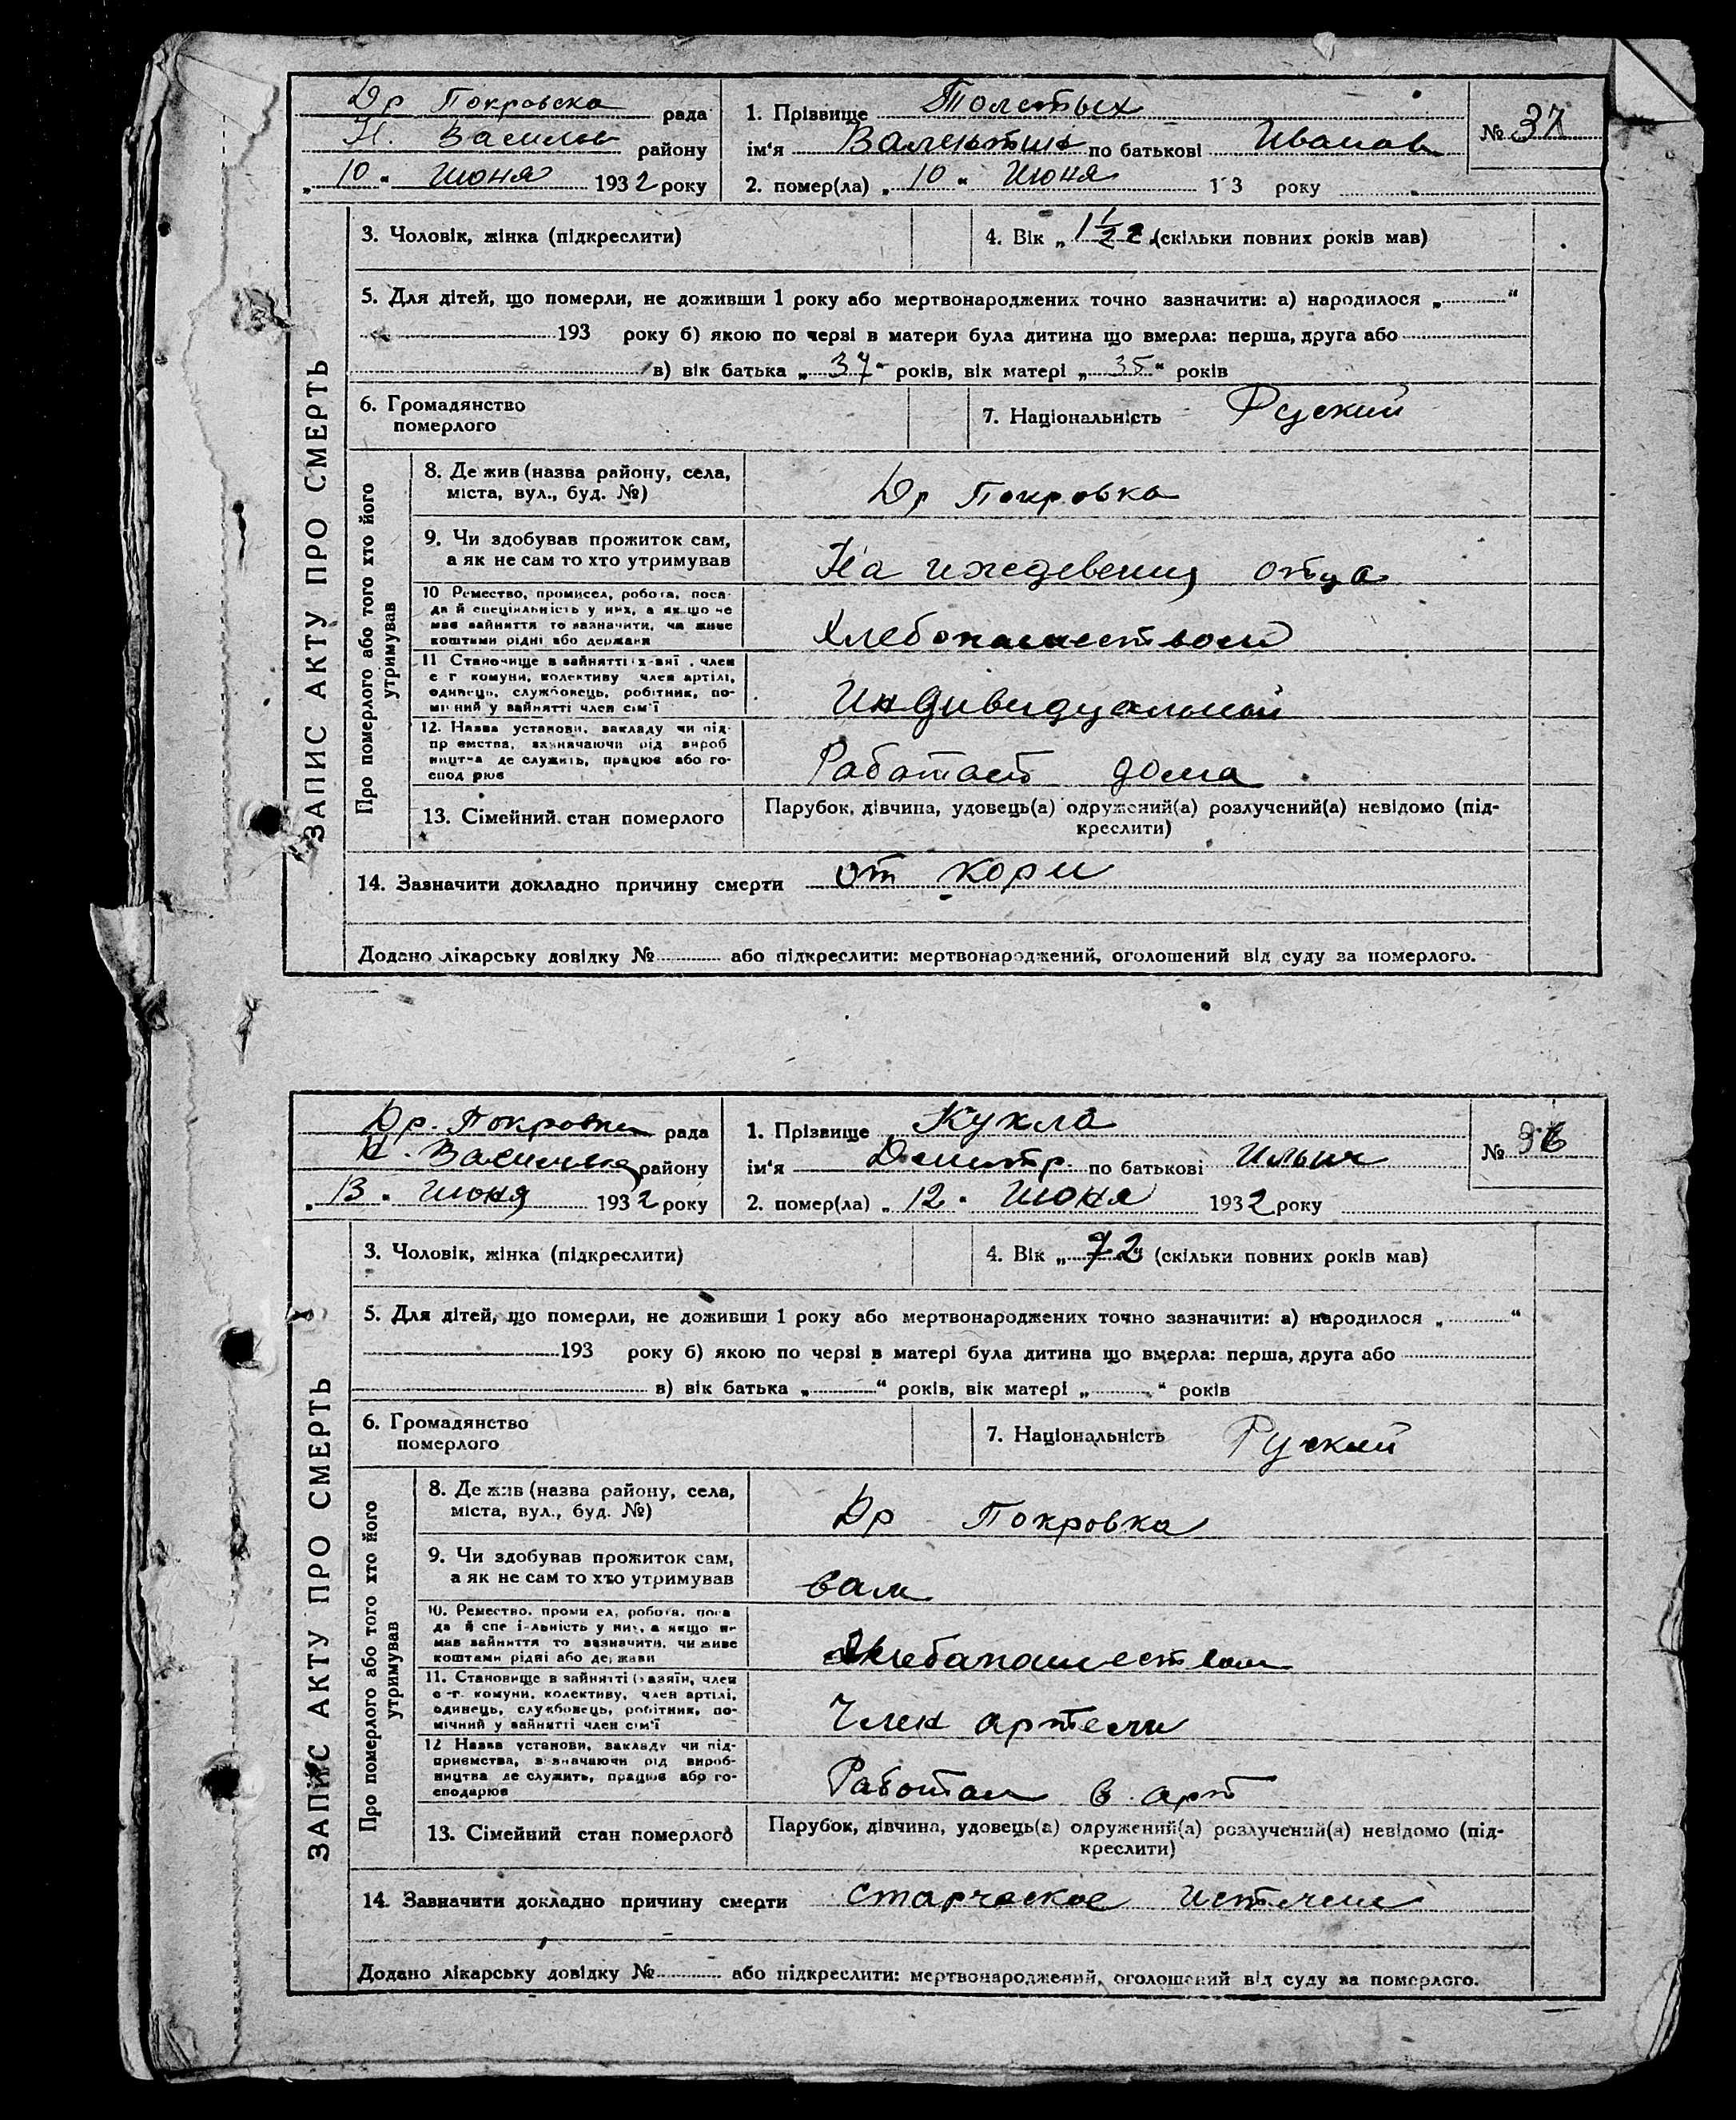 Др Покровска рада
Н. Васильев району
„ 10 “ Июня 1932 року
1. Прізвище Толстых
ім'я Валентин по батькові Иванов
2. помер(ла) „ 10 “ Июня 1 3 року
№ 37
ЗАПИС АКТУ ПРО СМЕРТЬ
3. Чоловік, жінка (підкреслити)
4. Вік „ 1½ г. (скільки повних років мав)
5. Для дітей, що померли, не доживши 1 року або мертвонароджених точно зазначити: а) народилося „ “
193 року б) якою по черзі в матери була дитина що вмерла: перша, друга або
в) вік батька „ 37 “ років, вік матері „ 35 “ років
6. Громадянство
померлого
7. Національність Руский
Про померлого або того хто його
утримував
8. Де жив (назва району, села,
міста, вул., буд. №)
Др Покровка
9. Чи здобував прожиток сам,
а як не сам то хто утримував
На иждевении отца
10 Ремество, промисел, робота, поса-
да й спеціяльність у них, а якщо не
мав зайняття то зазначити, чи живе
коштами рідні або держави
Хлебопашеством
11 Становище в зайнятті х-яні , член
с г комуни, колективу член артілі,
одинець, службовець, робітник, по-
мічний у зайнятті член сім'ї
Индивидуальный
12. Назва установи, закладу чи під-
пр ємства, зазначаючи рід вироб
ництва де служить, працює або го-
спод рює
Работает дома
13. Сімейний стан померлого
Парубок, дівчина, удовець(а) одружений(а) розлучений(а) невідомо (під-
креслити)
14. Зазначити докладно причину смерти от кори
Додано лікарську довідку № або підкреслити: мертвонароджений, оголошений від суду за померлого.
Др. Покровка рада
Н. Васильев району
„ 13 “ Июня 1932 року
1. Прізвище Кухла
ім'я Дмитр. по батькові Ильич
2. помер(ла) „ 12 “ Июня 1932 року
№ 36
ЗАПИС АКТУ ПРО СМЕРТЬ
3. Чоловік, жінка (підкреслити)
4. Вік „ 72 (скільки повних років мав)
5. Для дітей, що померли, не доживши 1 року або мертвонароджених точно зазначити: а) народилося „ “
193 року б) якою по черзі в матері була дитина що вмерла: перша, друга або
в) вік батька „ “ років, вік матері „ “ років
6. Громадянство
померлого
7. Національність Руский
Про померлого або того хто його
утримував
8. Де жив (назва району, села,
міста, вул., буд. №)
Др Покровка
9. Чи здобував прожиток сам,
а як не сам то хто утримував
сам
10. Ремество, проми ел, робота, поса
да й спе і-льність у них, а якщо н-
мав зайняття то зазначити, чи живе
коштами рідні або держави
Хлебапашеством
11. Становище в зайнятті (хазяїн, член
с-г. комуни, колективу, член артілі,
одинець, службовець, робітник, по-
мічний у зайнятті член сім'ї
Член артели
12 Назва установи, закладу чи під-
приємства, зазначаючи рід вироб-
ництва де служить, працює або го-
сподарює
Работал в арт
13. Сімейний стан померлого
Парубок, дівчина, удовець(а) одружений(а) розлучений(а) невідомо (під-
креслити)
14. Зазначити докладно причину смерти старческое
Додано лікарську довідку № або підкреслити: мертвонароджений, оголошений від суду за померлого.